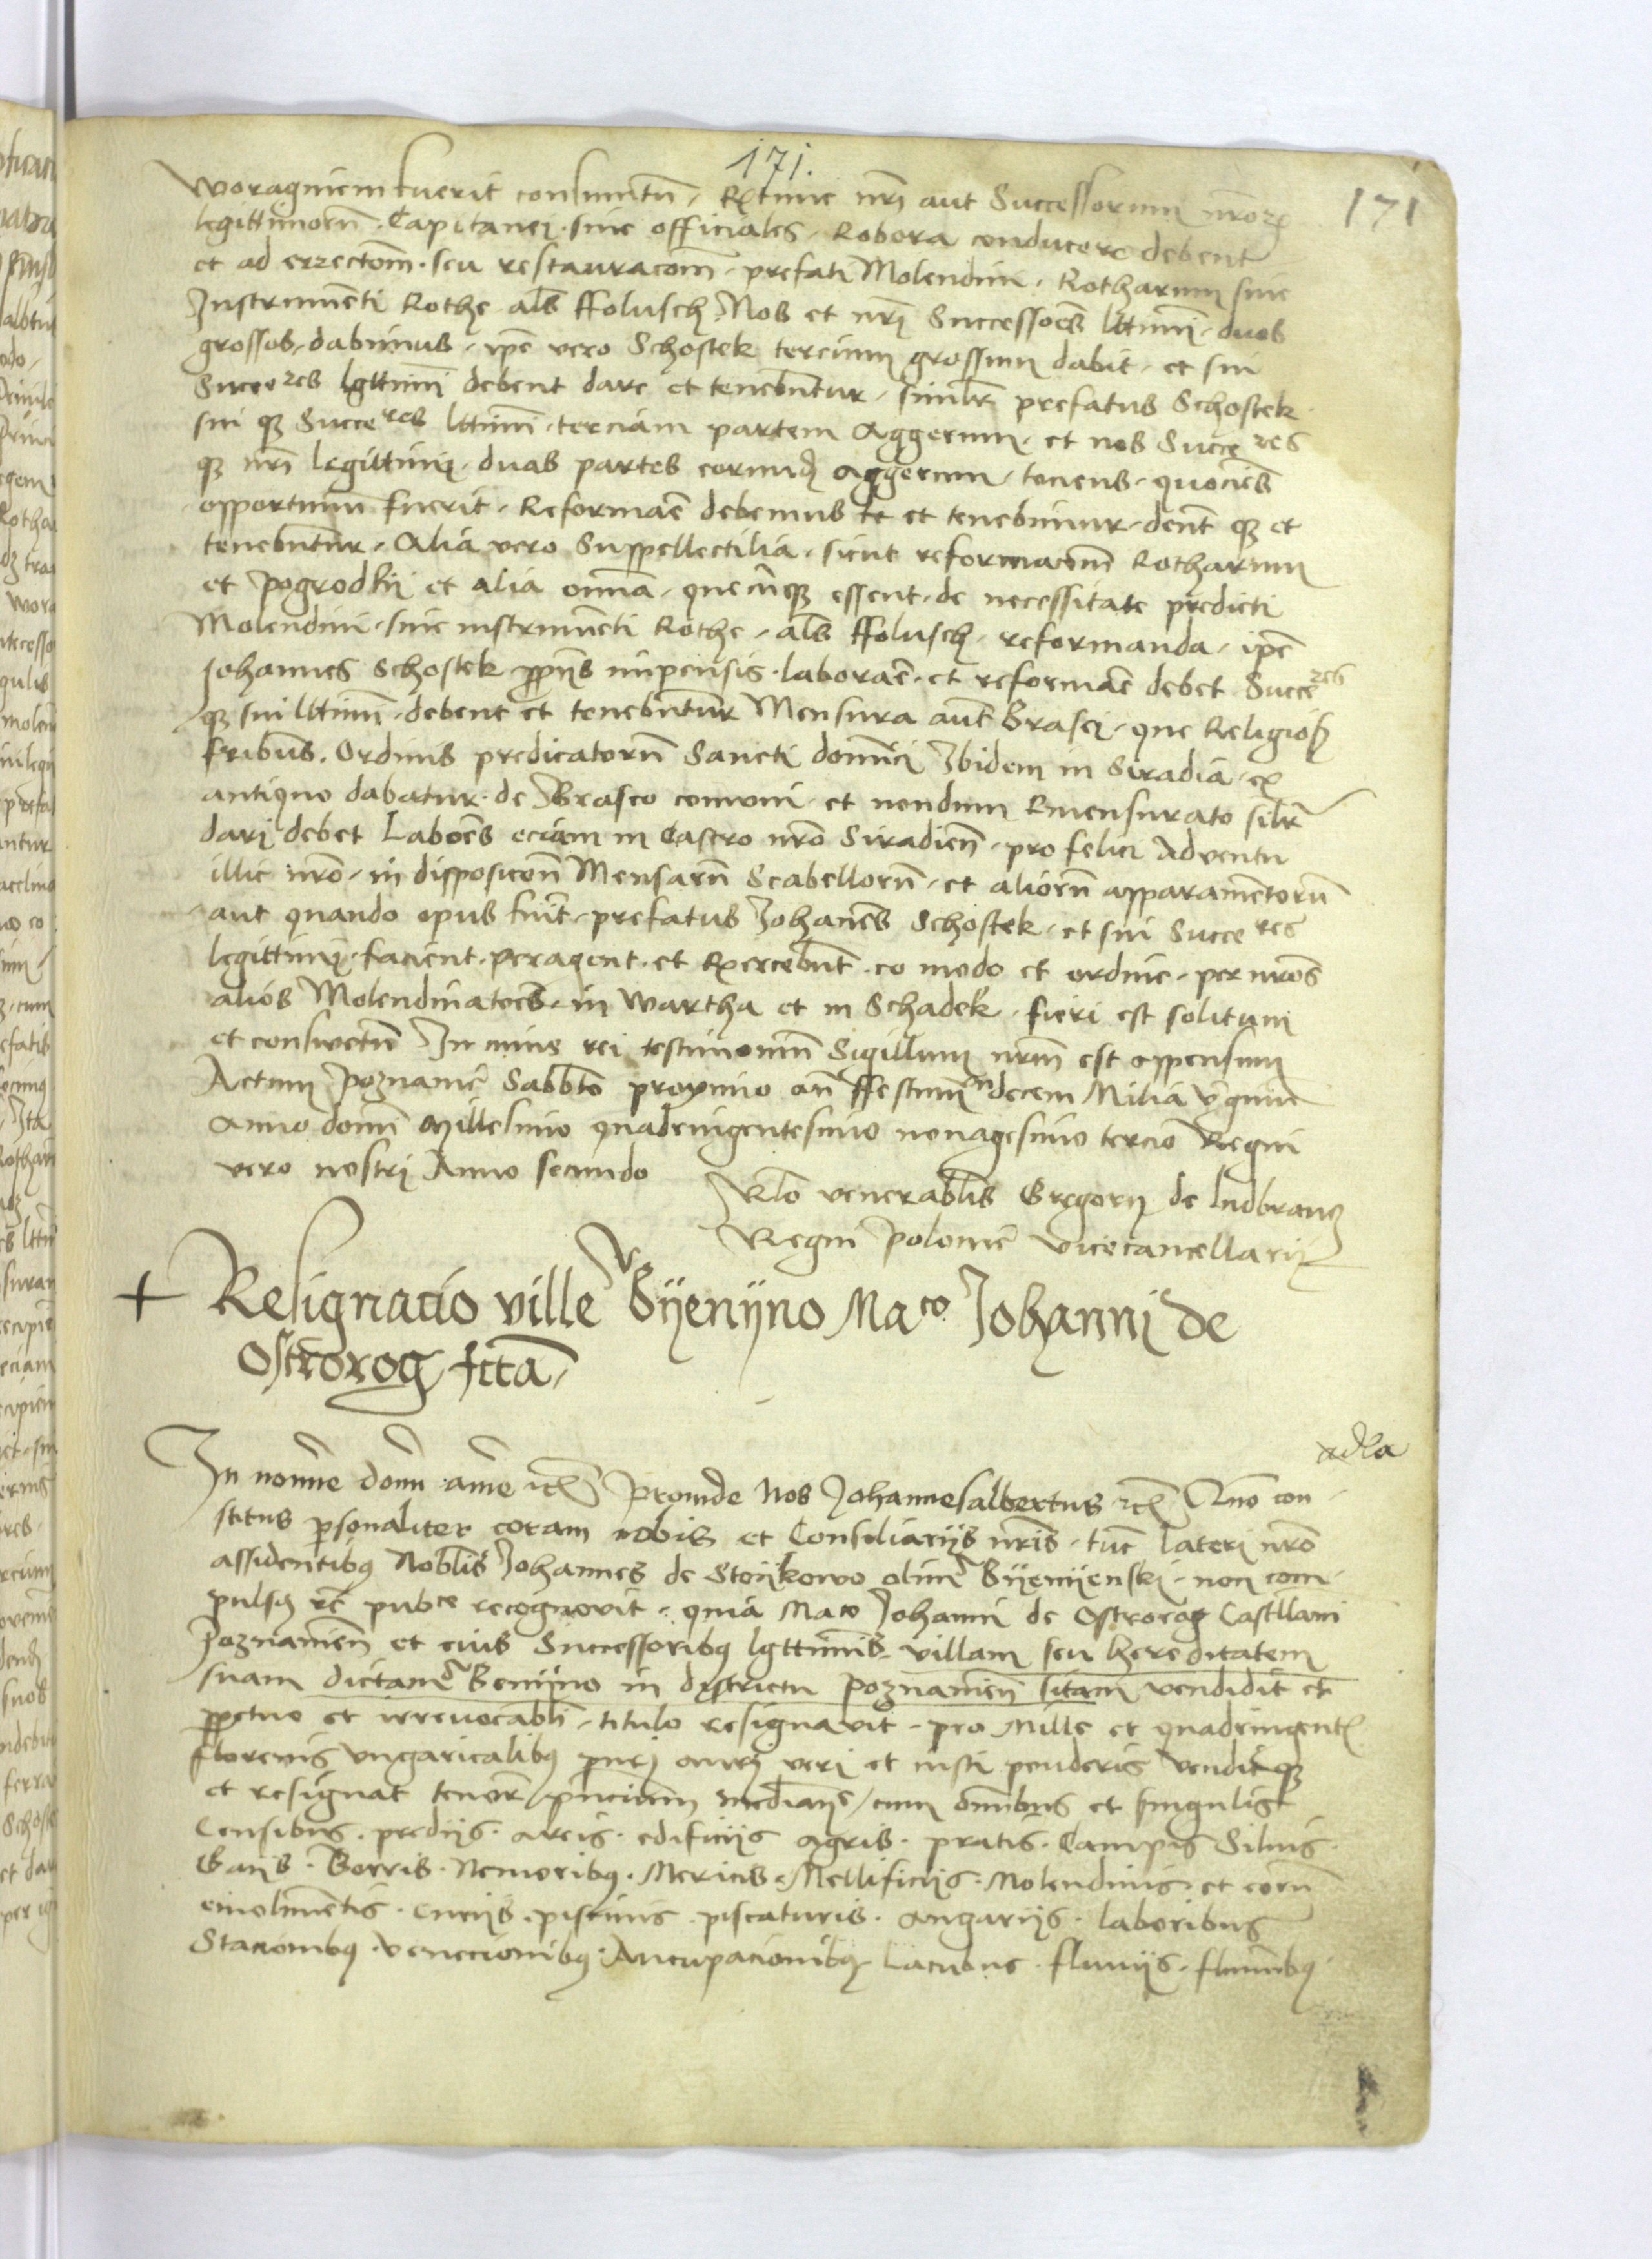 171.
171
woraginem fuerit consumtū, Extunc nrī aut Successorum nrōrꝫ
legittimorū. Capitanei. sive officiales, Robora conducere debent
et ad erzectōm. seu restauracōm. prefati Molendini. Rotharum sive
Instrumēti Rothe als ffolusch Nos et nrī Successoēs lttimi. duos
grossos, dabimus. ipē vero Schostek tercium grossum dabit, et sui
Succeres lgttimī debent dare et tenebūtur, similr prefatus Schostek
sui qꝫ Succeres lttimī. terciam partem Aggerum. et nos Succeres
qꝫ nrī legittimi, duas partes eorundꝫ Aggerum, tociens, quociēs
opportunū fuerit. Reformāe debemus te et tenebimur, debēt qꝫ et
tenebūtur. Alia vero Suppellectilia, sicut reformacōm Rotharum
et pogrodkii et alia omīa. quecūqꝫ essent. de necessitate predicti
Molendini. sive instrumēti Rothe, als ffolusch. reformanda. ipē
Johannes Schostek ppiis impensis. laborāe. et reformāe debet Succeres
qꝫ sui lttimī. debent et tenebūtur Mensura autē Brasei, que Religiosꝫ
fribus. Ordinis predicatorū Sancti domīci Ibidem in Siradia, ex
antiquo dabatur. de Braseo comuni. et nondum Emensurato silr
dari debet Laboēs eciam in Castro nrō Siradieñ. pro felici Adventu
illic nrō, in disposicōn Mensarū Scabellorū, et aliorū apparamentorū
aut quando opus fuīt. prefatus Johanēs Schostek, et sui Succeres
legittimi. facient. peragent. et Exercebūt. eo modo et ordine, per nrōs
alios Molendinatoēs, in Wartha et in Schadek, fieri est solitum
et consuetū In cuius rei testimonium Sigillum nrm est appensum
Actum Poznanie Sabbto proximo an ffestum undecem Milia Virginū
Anno domī Millesimo quadringentesimo nonagesimo tercio Regni
vero nostri Anno secundo
Rlo venerablis Gregorii de ludbrancz
Regni Polonie Vicecancellarii
+ Resignacio ville Byenyno Maco Johanni de
Ostrorog fcta
adla
In nomīe domī amē etc Proinde Nos Johannesalbertus etc Quo con
stitus psonaliter coram nobis et Consiliariis nrīs, tūc lateri nrō
assidentibꝰ Noblis Johannes de Stoykowo olim Byenyenski, non com
pulsꝰ etc pubce recognovit, quia Maco Johanni de Ostrorog Castllani
Poznanieñ et eius Successoribꝰ lgttimis, villam seu hereditatem
suam dictam Benyno in districtu Poznanieñ sitam vendidit et
ppetuo et irrevocabli, titulo resignavit, pro Mille et quadringent
florenis Ungaricalibꝰ puri auri veri et iusti ponderis Vendit qꝫ
et resignat tenor pncium mediante, cum omībus et singulis
Censibus. prediis. areis. edificiis agris. pratis. Campis Silvis.
Gaiis. Borris. Nemoribꝰ. Mericis. Mellificiis. Molendinis et eorū
emolimētis. piscinis. piscaturis. angariis. laboribus
Stacionibꝰ. Venecionibꝰ. Aucupacionibꝰ Lacubus. fluviis. fluminibꝰ